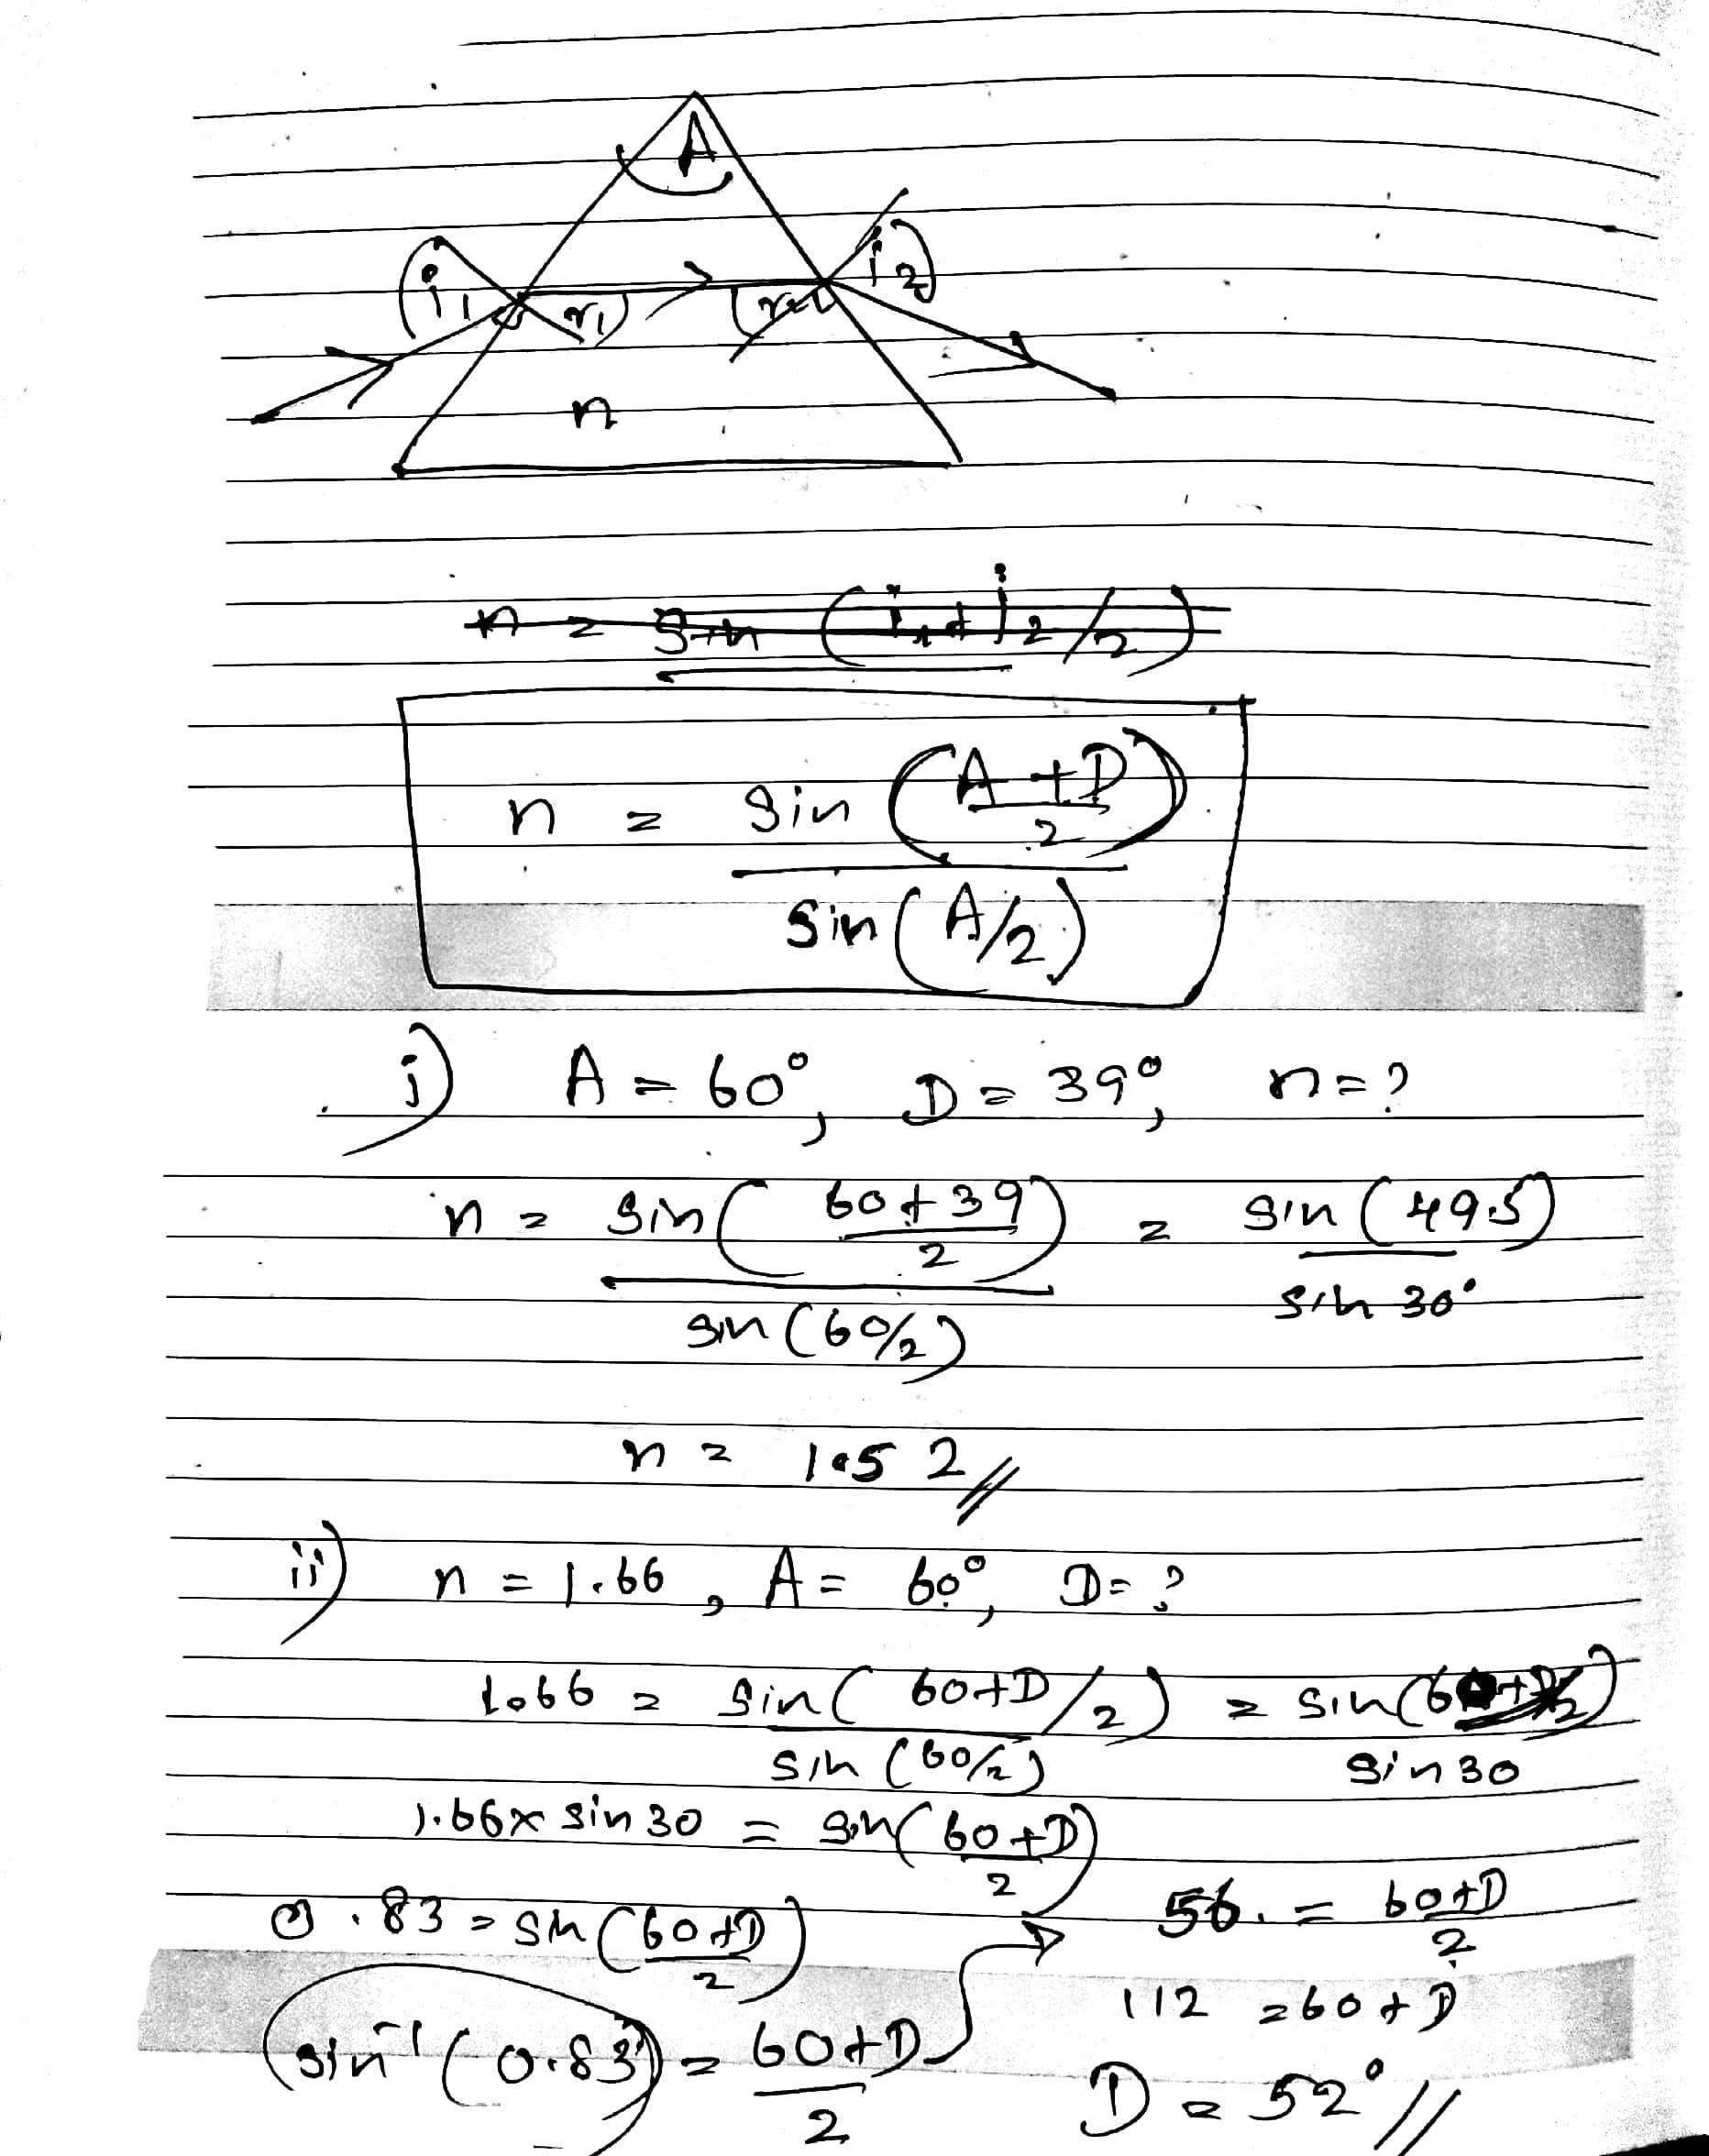 A
i₁ r₁ r₂ i₂
n
n = sin (i₁+i₂/2)
n = sin (A+D/2) / sin (A/2)
i) A = 60°, D = 39°, n = ?
n = sin (60+39/2) / sin (60/2) = sin (49.5) / sin 30°
n = 1.52 //
ii) n = 1.66, A = 60°, D = ?
1.66 = sin (60+D/2) / sin (60/2) = sin (60+D/2) / sin 30
1.66 x sin 30 = sin (60+D/2)
0.83 = sin (60+D/2)
sin⁻¹ (0.83) = 60+D/2
56. = 60+D/2
112 = 60+D
D = 52° //